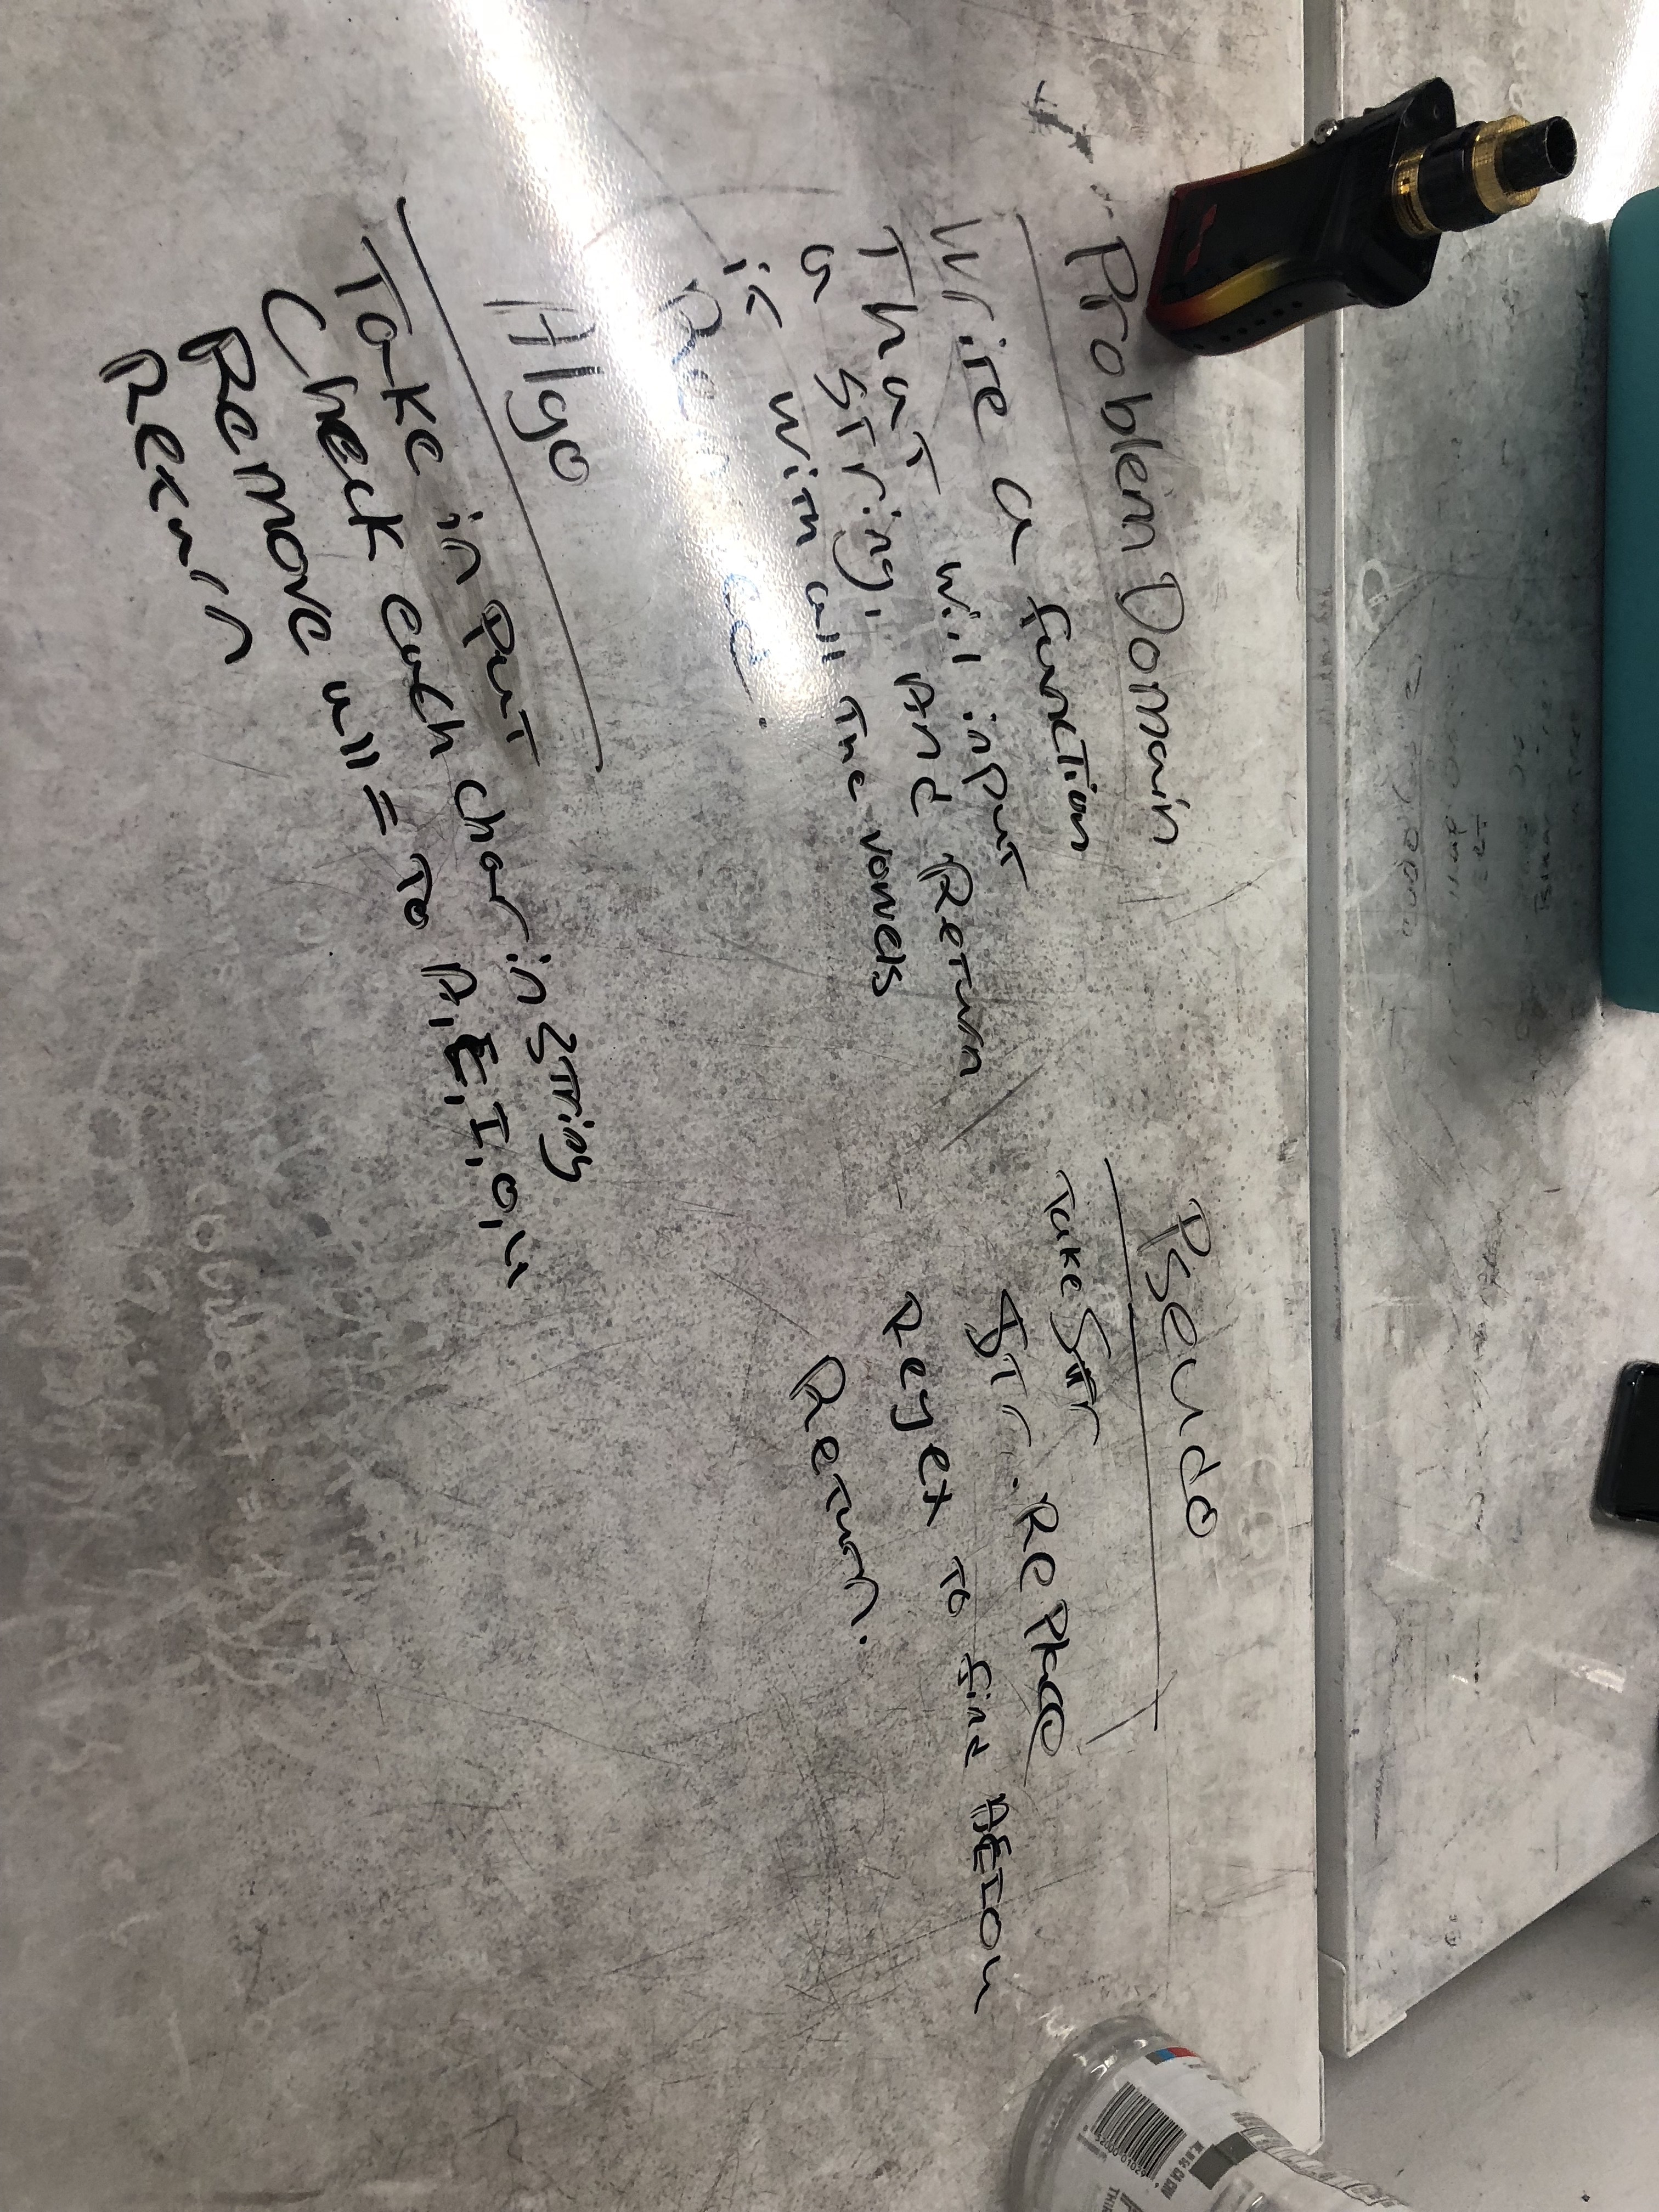 Problem Domain
Write a function
That will input
a string, And Return
it with all the vowels
Algo
Take input
Check each char in string
Remove all = To A,E,I,O,u
Return
Pseudo
Take Str
Str.Replace
Regex To find AEIOu
Return.